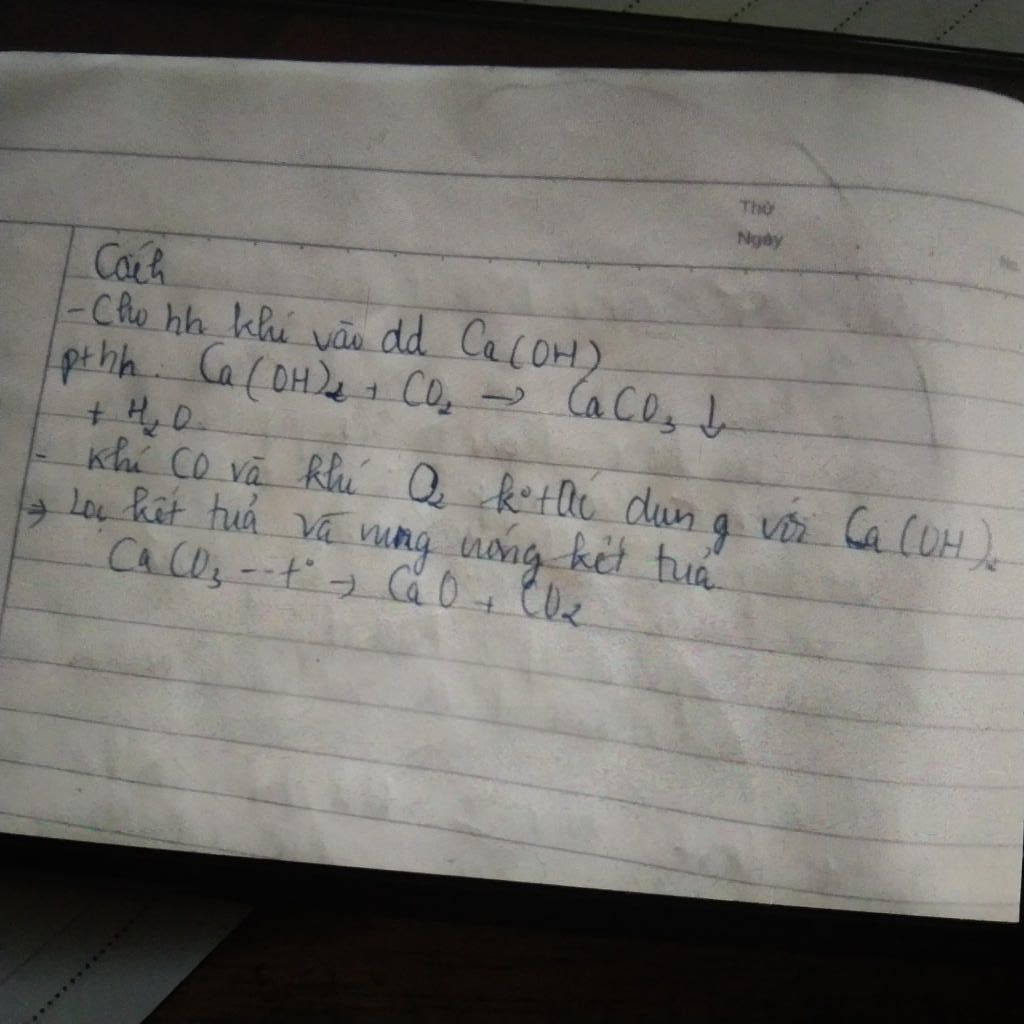 Thứ
Ngày
No.
Cách
- Cho hh khí vào dd Ca(OH)
pthh. Ca(OH)₂ + CO₂ → CaCO₃ ↓
+ H₂O.
- khí CO và khí O₂ k° tác dụng với Ca(OH)₂
⇒ Lọc kết tủa và nung nóng kết tủa
CaCO₃ --t°→ CaO + CO₂